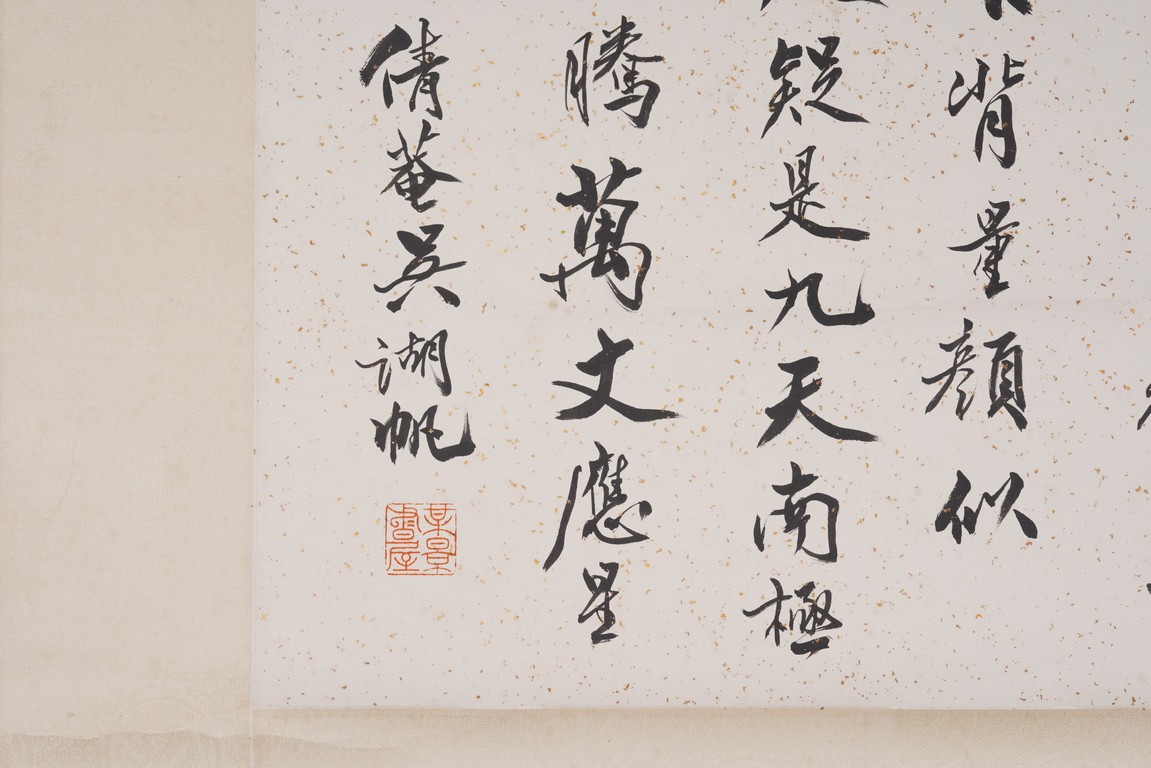 背量顏似
疑是九天南極
騰萬丈應星
倩菴吳湖帆
某景書屋